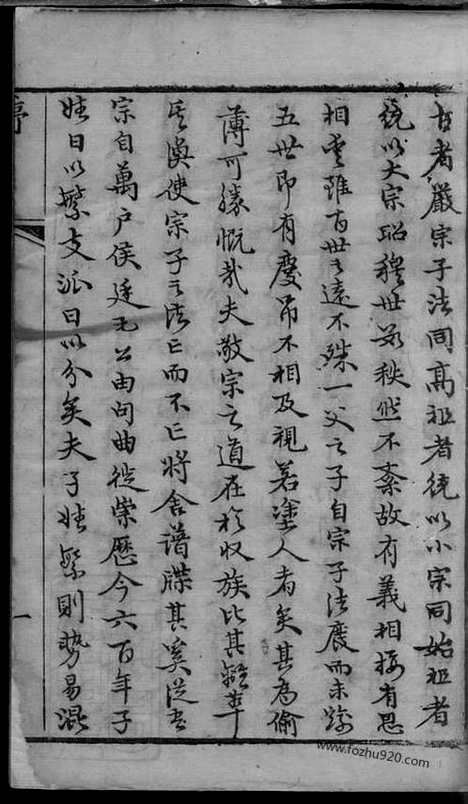 古者嚴宗子法同高祖者統以小宗同始祖者
統以大宗昭穆世次秩然不紊故有義相接有恩
相愛雖百世之遠不殊一父之子自宗子法廢而未踰
五世即有慶吊不相及視若塗人者矣其為偷
薄可勝慨哉夫敬宗之道在於收族比其離
其渙使宗子之法亡而不亡將舍譜牒其奚從吾
宗自萬户侯廷公由句曲徙崇歷今六百年子
姓日以繁支派日以分矣夫子姓繁則勢易混
序
一
www.fozhu920.com